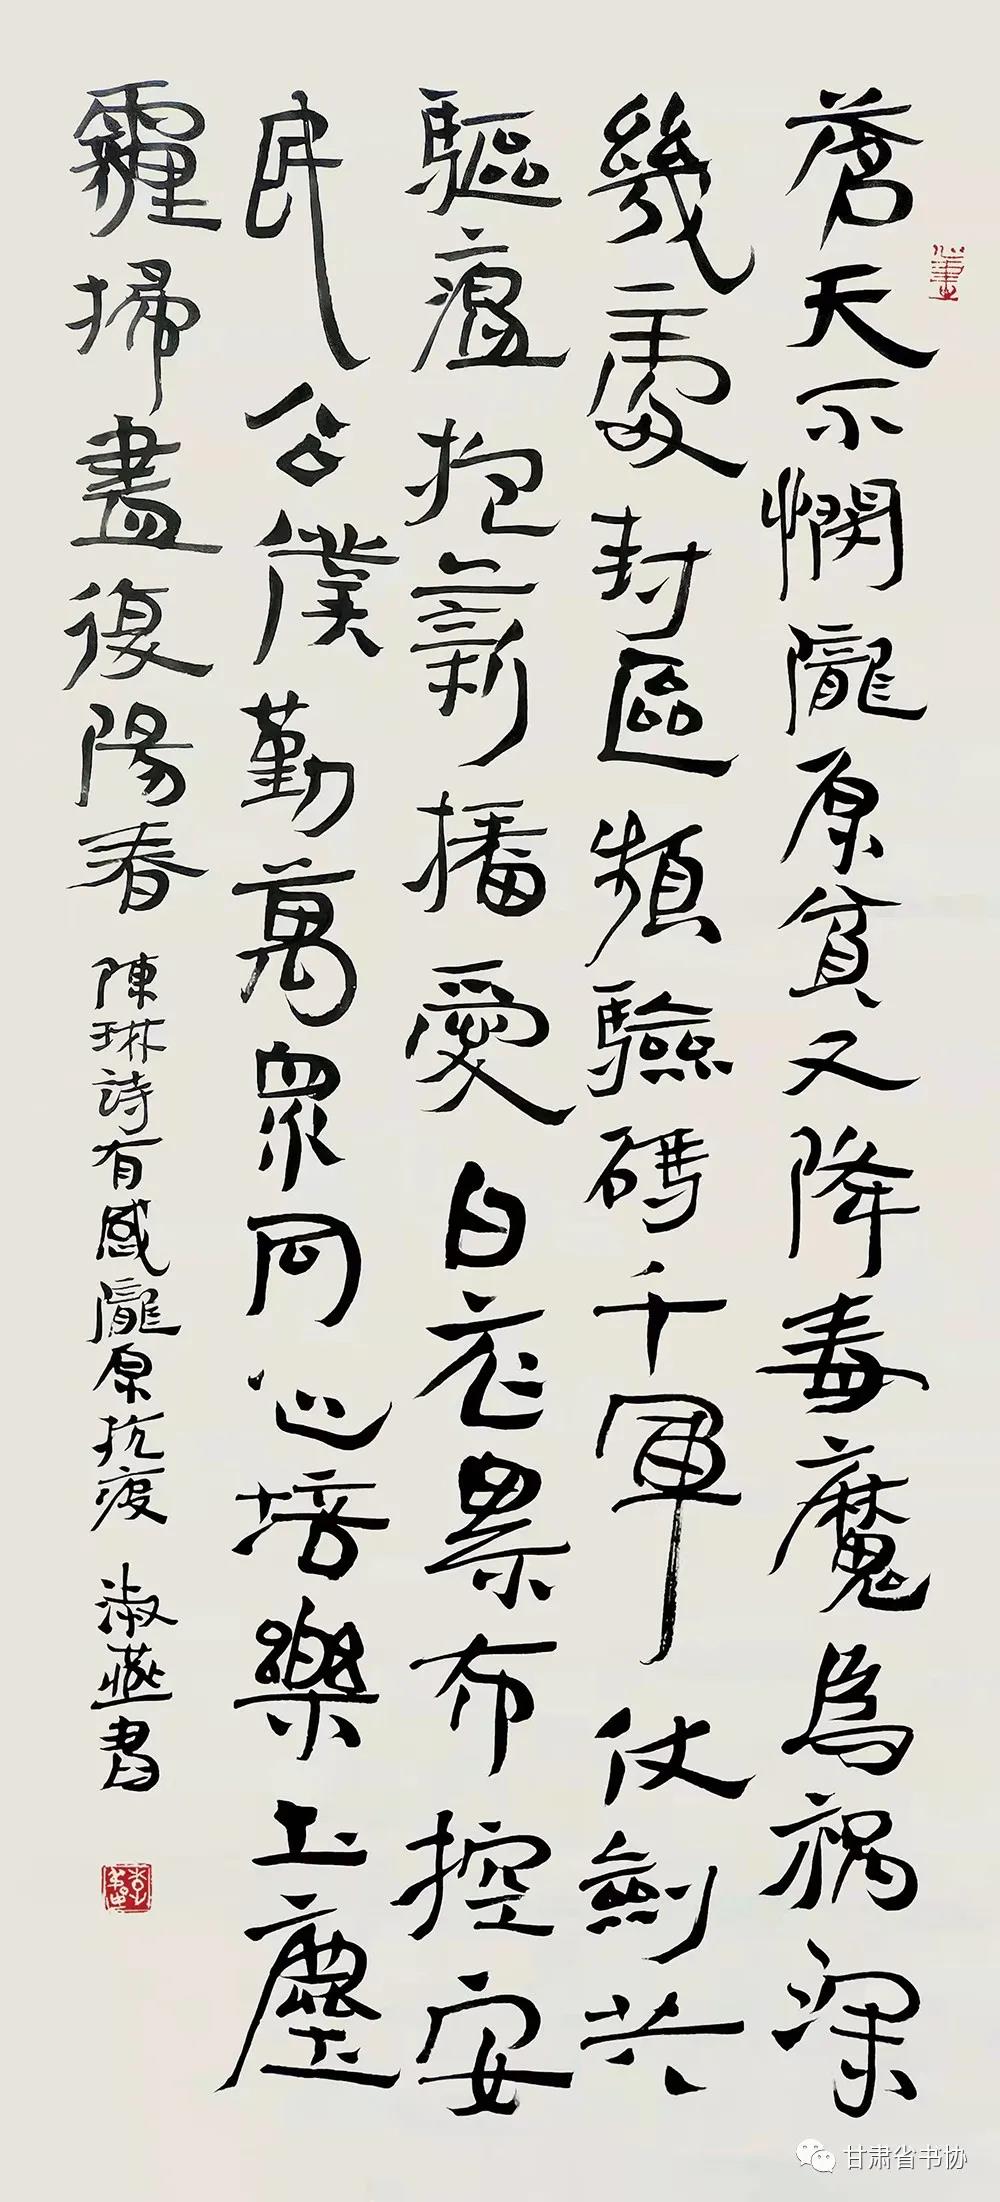 蒼天不憫隴原貧又降毒魔為禍深
幾處封區頻驗碼千軍仗劍共
驅瘟抱薪播愛白衣累布控安
民公僕勤萬眾同心培樂土塵
霾掃盡復陽春 陳琳詩有感隴原抗疫 淑燕書
甘肃省书协